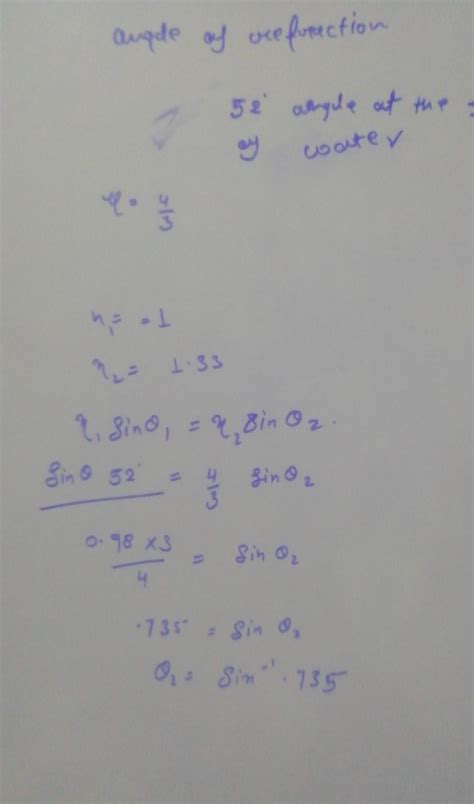 angle of refraction
52° angle at the
of water
η = 4/3
n₁ = = 1
η₂ = 1.33
η₁ sinθ₁ = η₂ Sin θ₂.
Sinθ 52° = 4/3 Sinθ₂
0.98 × 3 / 4 = Sin θ₂
.735 = Sin θ₂
θ₂ = Sin⁻¹ .735